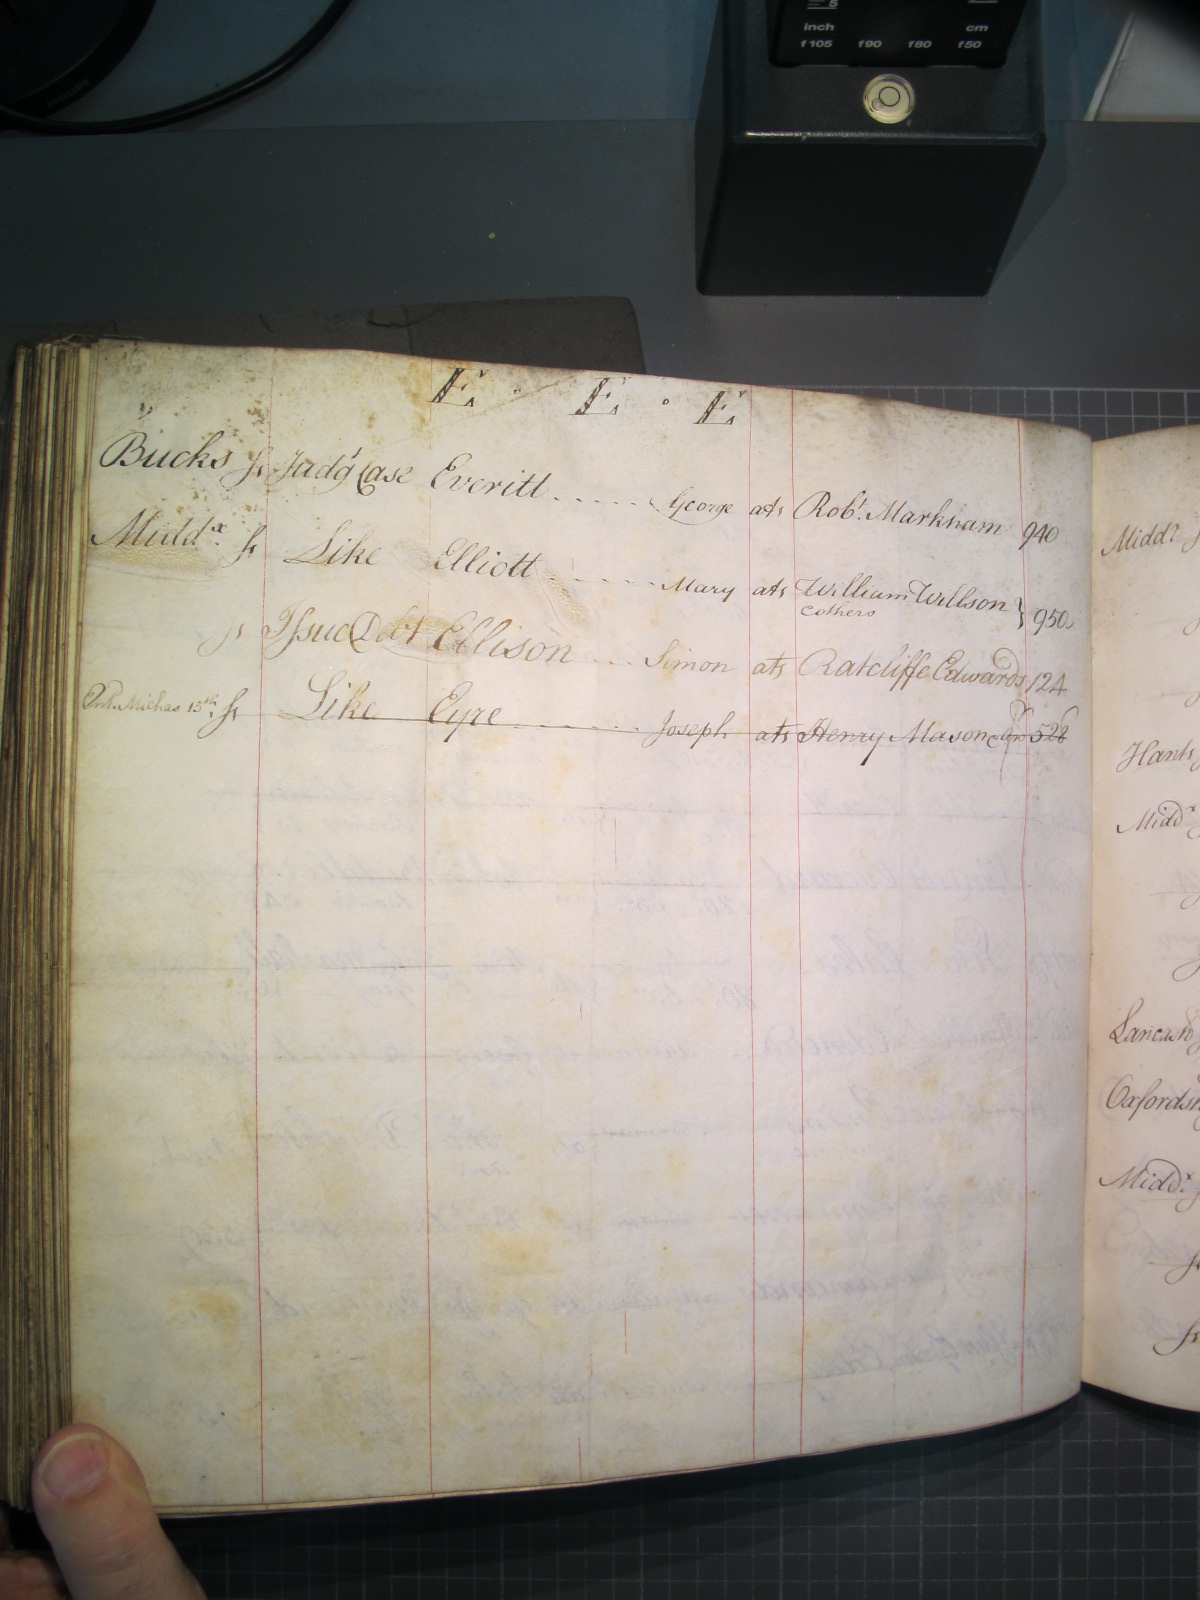 inch cm
f105 f90 f80 f50
PHILIPS
E · E · E
Bucks ss Judg Case Everitt ..... George ats Robt. Markham 940
Middx. ss Like Elliott ..... Mary ats William Willson
& others } 950
ss Issue Debt Ellison ... Simon ats Ratcliffe Edwards 124
Ent. Michas 15th. ss Like Eyre ..... Joseph ats Henry Mason 528
Middx
Hants
Middx
Lancash
Oxfordsh
Middx.